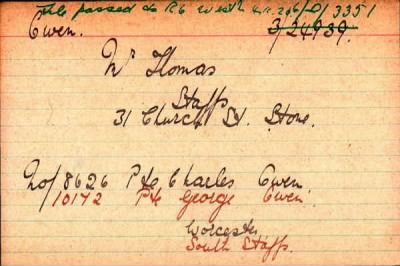 File passed to R6
Owen. 3/24939.
Mr Thomas
Staffs
31 Church St. Stone.
No/8626 Pte Charles Owen
10172 Pte George Owen.
Worcester
South Staffs.